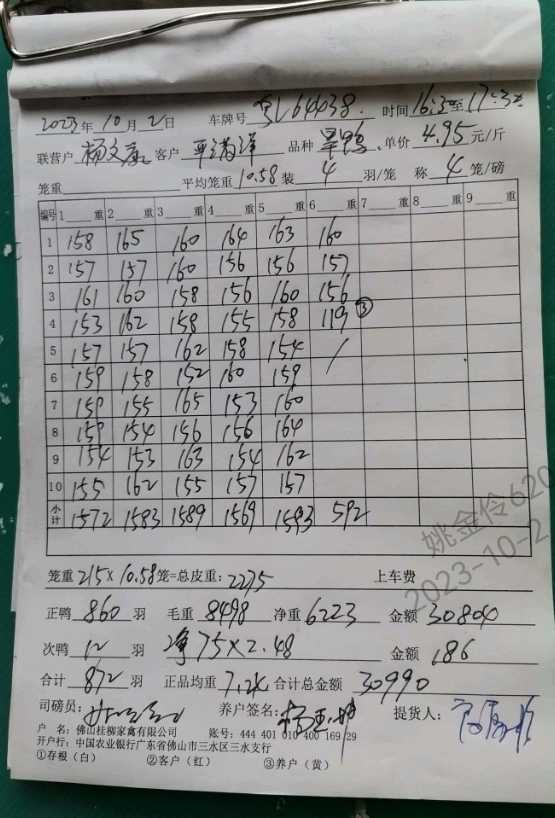 2023年10月2日 车牌号 64438 时间16:30至17:30
联营户 杨文 客户 平满洋 品种 旱鸭 单价4.95元/斤
笼重 平均笼重10.58装 4 羽/笼 称 4 笼/磅
编号 1 重 2 重 3 重 4 重 5 重 6 重 7 重 8 重 9 重
1 158 165 160 164 163 160
2 157 157 160 156 156 157
3 161 160 158 156 160 156
4 153 162 158 155 158 119 ③
5 157 157 162 158 154 /
6 159 158 152 160 159
7 159 155 165 153 160
8 159 154 156 156 164
9 154 153 163 154 162
10 155 162 155 157 157
小计 1572 1583 1589 1569 1593 592
笼重215×10.58笼=总皮重:2275 上车费
正鸭 860 羽 毛重 8498 净重6223 金额 30804
次鸭 12 羽 净75×2.48 金额 186
合计 872 羽 正品均重 7.24 合计总金额 30990
司磅员: 养户签名: 提货人:
户 名:佛山桂柳家禽有限公司 账号:444 401 010 400 169 29
开户行:中国农业银行广东省佛山市三水区三水支行
①存根(白) ②客户(红) ③养户(黄)
姚金伶620
2023-10-2